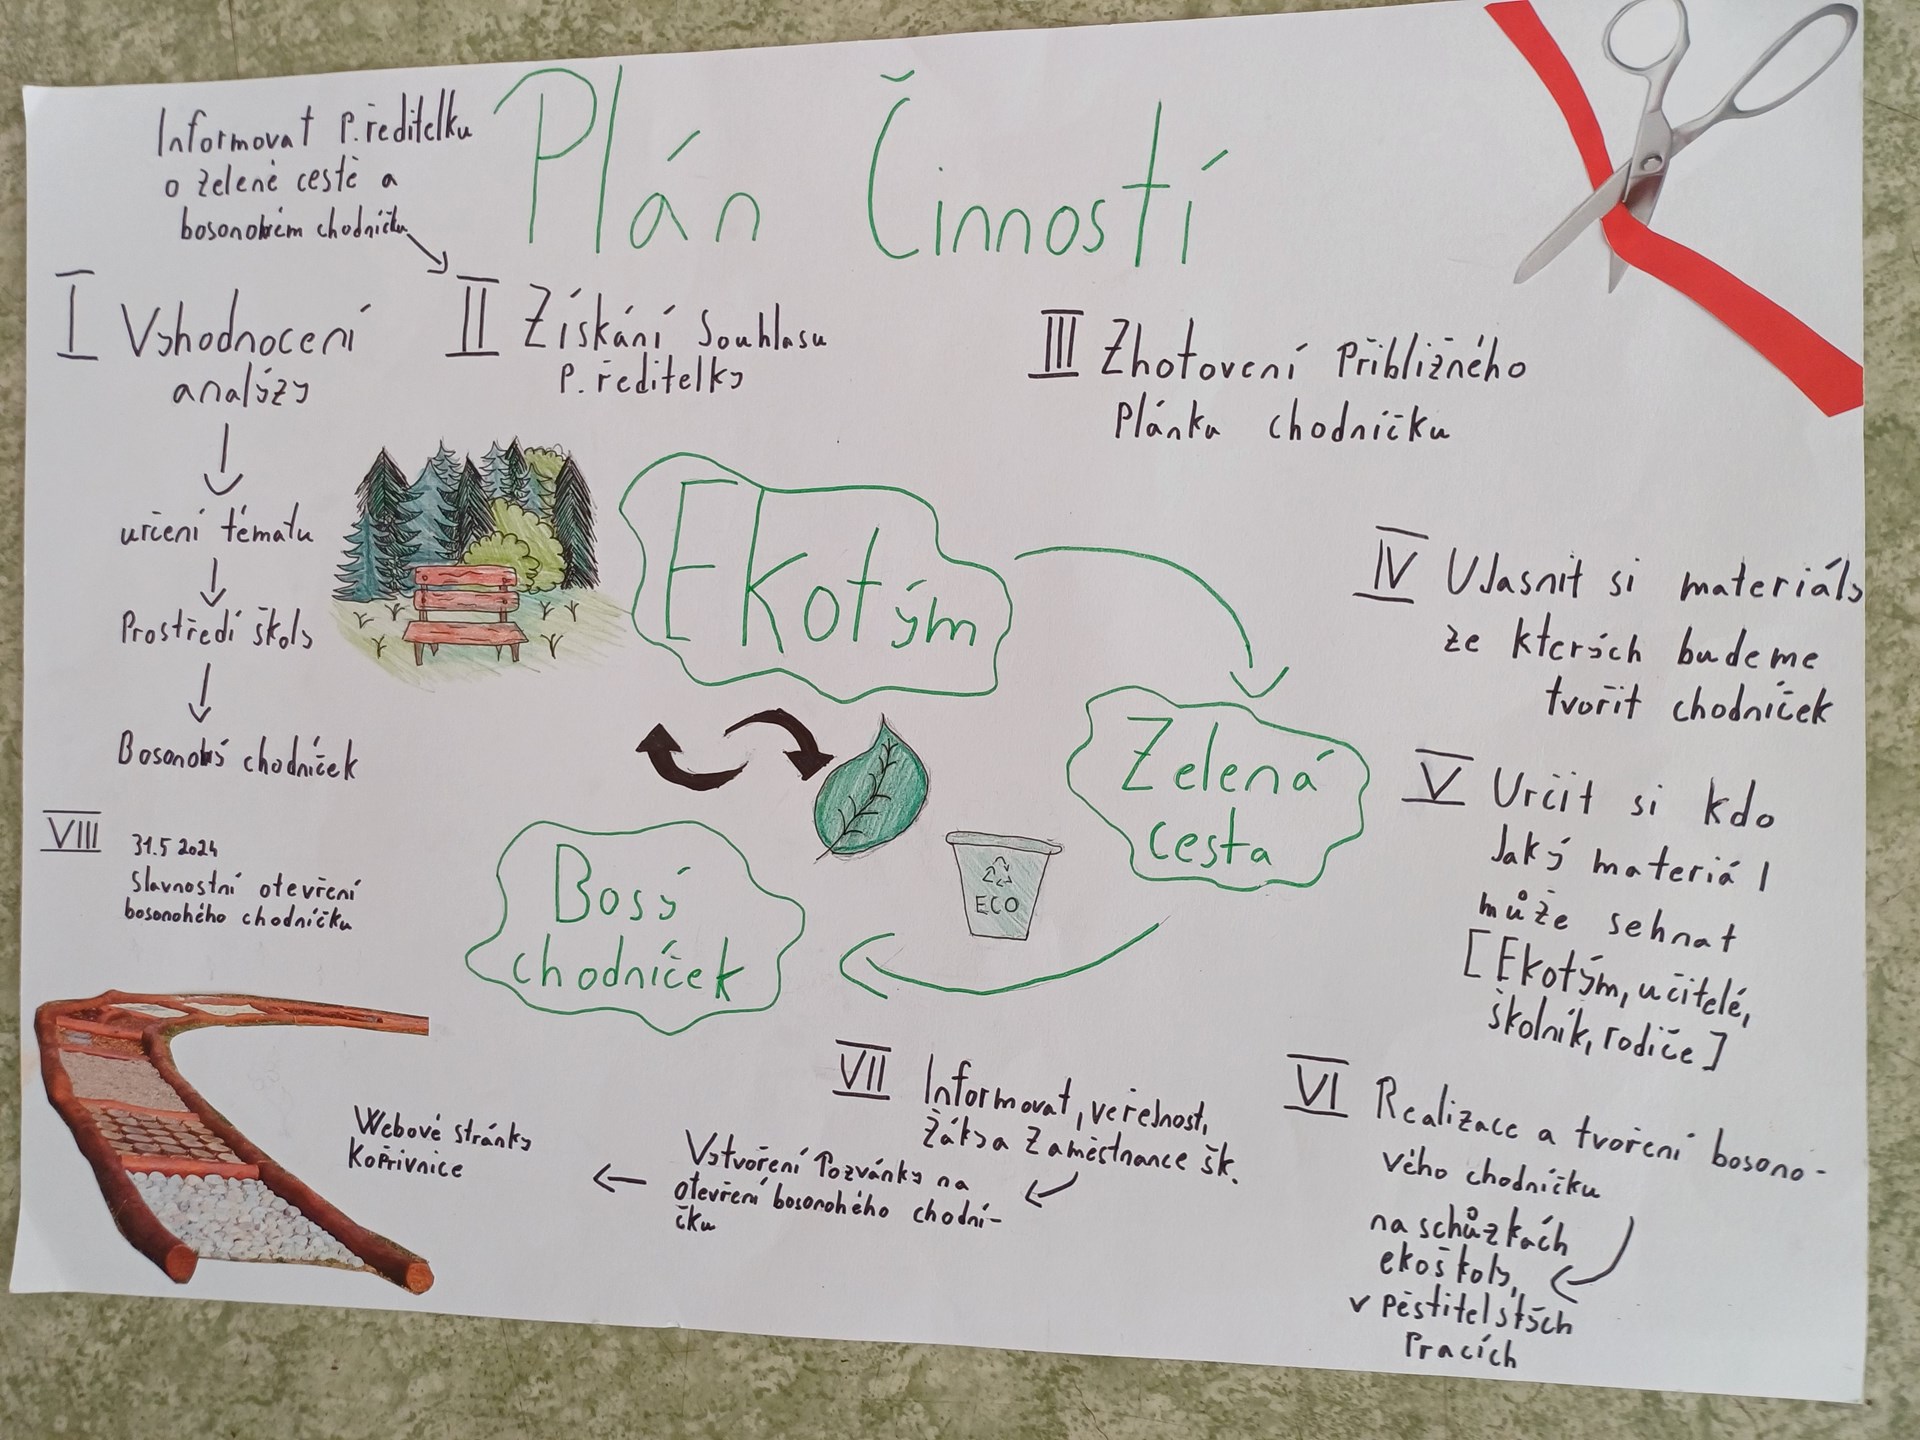 Plán Činností
Informovat p.ředitelku
o zelené cestě a
bosonohém chodníčku
I Vyhodnocení
analýzy
určení tématu
Prostředí školy
Bosonohý chodníček
II Získání souhlasu
p. ředitelky
III Zhotovení přibližného
plánku chodníčku
IV Ujasnit si materiály
ze kterých budeme
tvořit chodníček
V Určit si kdo
jaký materiál
může sehnat
[Ekotým, učitelé,
školník, rodiče]
VI Realizace a tvoření bosono-
vého chodníčku
na schůzkách
ekoškoly,
v pěstitelských
pracích
VII Informovat, veřejnost,
žáky a zaměstnance šk.
Vytvoření pozvánky na
otevření bosonohého chodní-
čku
Webové stránky
Kopřivnice
VIII 31.5 2024
Slavnostní otevření
bosonohého chodníčku
Ekotým
Zelená
cesta
Bosý
chodníček
ECO